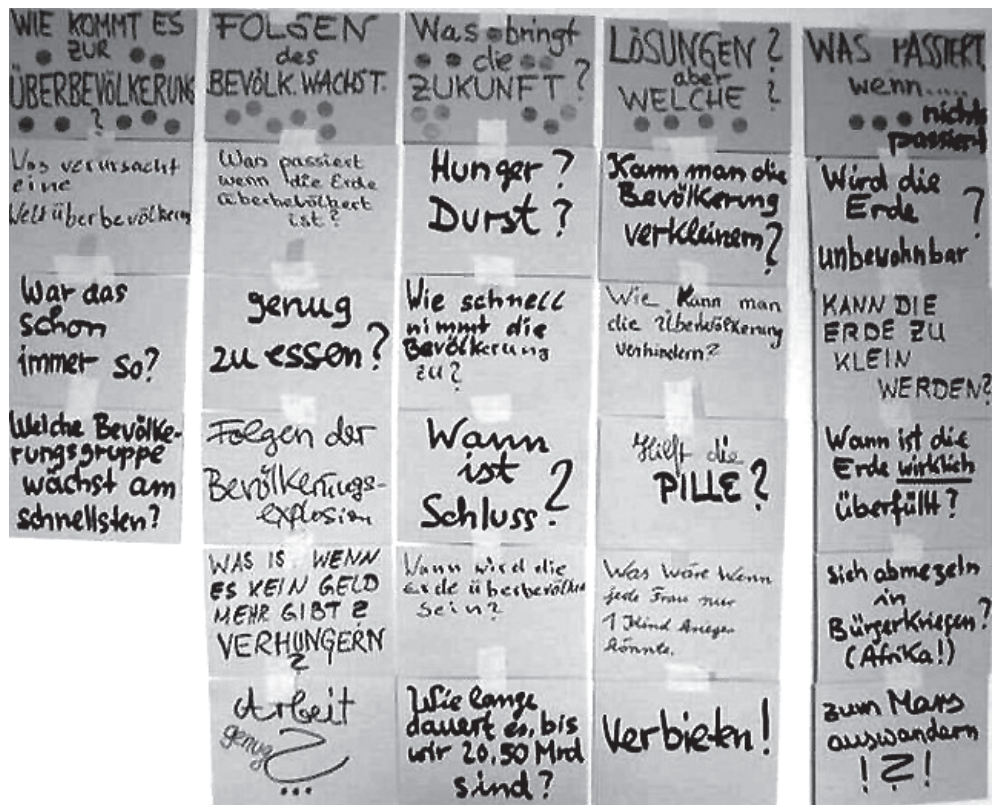 WIE KOMMT ES
ZUR
ÜBERBEVÖLKERUNG
?
Was verursacht
eine
Weltüberbevölkerung
War das
schon
immer so?
Welche Bevölke-
rungsgruppe
wächst am
schnellsten?
FOLGEN
des
BEVÖLK.WACHST.
Was passiert
wenn die Erde
überbevölkert
ist?
genug
zu essen?
Folgen der
Bevölkerungs-
explosion
WAS IS WENN
ES KEIN GELD
MEHR GIBT?
VERHUNGERN
?
Arbeit
genug?
...
Was bringt
die
ZUKUNFT?
Hunger?
Durst?
Wie schnell
nimmt die
Bevölkerung
zu?
Wann
ist
Schluss?
Wann wird die
Erde überbevölkert
sein?
Wie lange
dauert es, bis
wir 20,50 Mrd
sind?
LÖSUNGEN?
aber
WELCHE?
Kann man die
Bevölkerung
verkleinern?
Wie kann man
die Überbevölkerung
verhindern?
Hilft die
PILLE?
Was wäre wenn
jede Frau nur
1 Kind kriegen
könnte.
Verbieten!
WAS PASSIERT,
wenn.....
nichts
passiert
Wird die
Erde ?
unbewohnbar
KANN DIE
ERDE ZU
KLEIN
WERDEN?
Wann ist die
Erde wirklich
überfüllt?
sich abmezeln
in
Bürgerkriegen?
(Afrika!)
zum Mars
auswandern
!?!